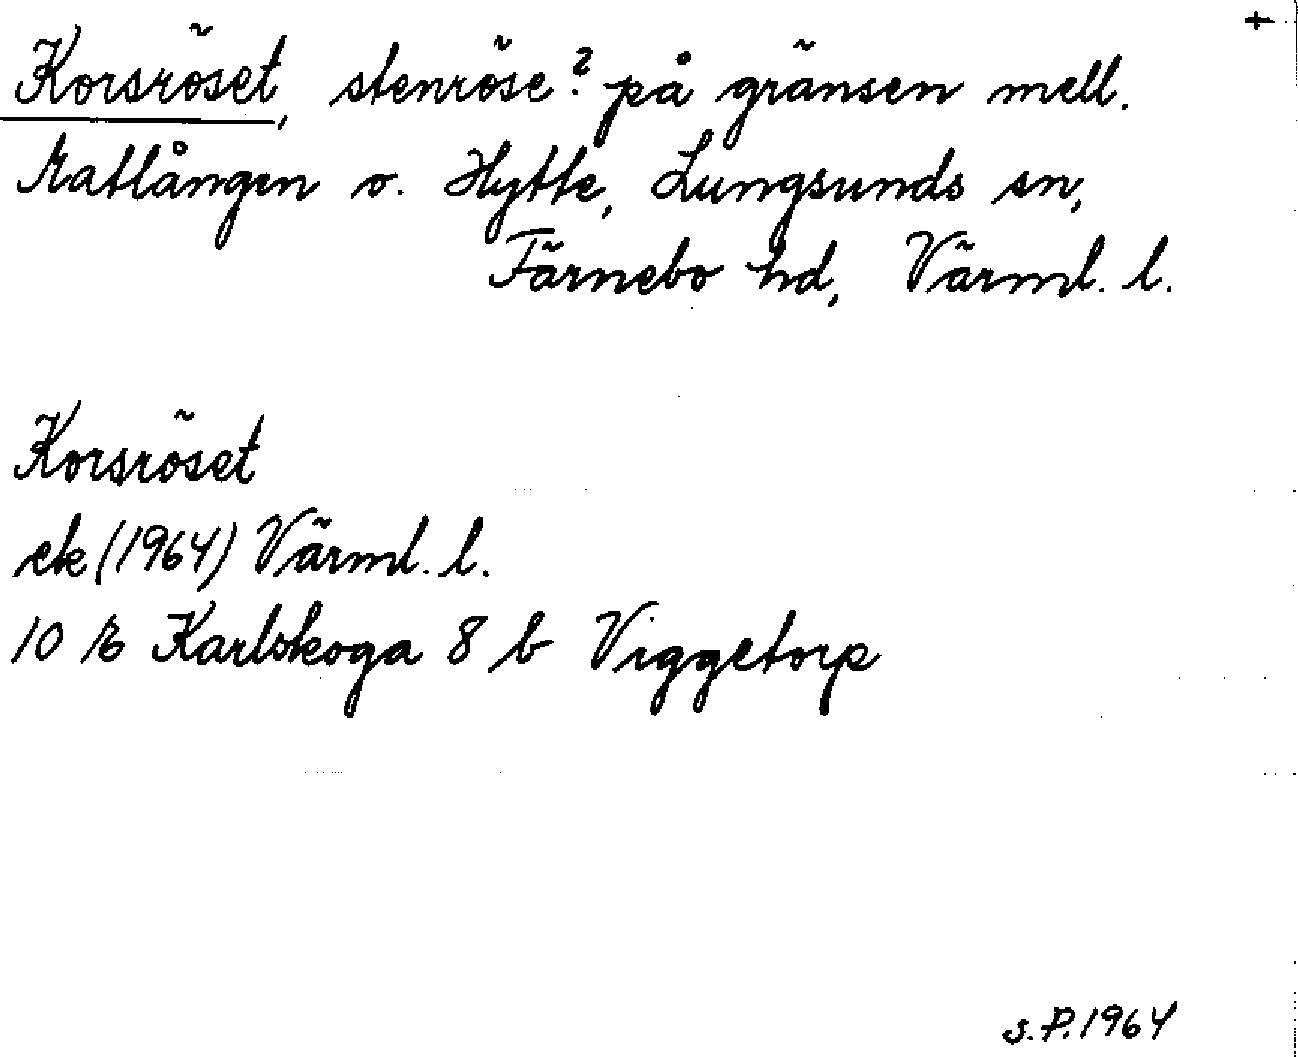 +
Korsröset, stenröse? på gränsen mell.
Matlången o. Hytte, Lungsunds sn,
Färnebo hd, Värml. l.
Korsröset
ek (1964) Värml. l.
10 E Karlskoga 8 b Viggetorp
S.P. 1964